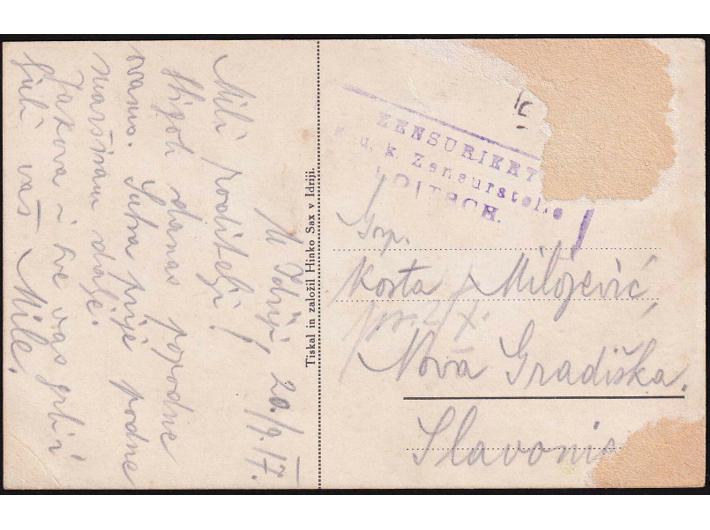 U Idriji, 20./9. 17.
Mili roditelji!
Stigoh danas popodne
ovamo. Sutra prije podne
marširam dalje.
Jakova i sve vas grli i
ljubi vaš Mile.
Tiskal in založil Hinko Sax v Idriji.
ZENSURIERT
K. u. k. Zensurstelle
LOITSCH.
Gsp.
Kosta Milojević,
Nova Gradiška.
Slavonia